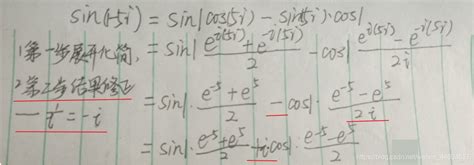 sin(1-5i) = sin1 cos(5i) - sin(5i)·cos1
1.第一步展开化简, = sin1 (e^{i(5i)}+e^{-i(5i)})/2 - cos1 (e^{i(5i)}-e^{-i(5i)})/2i
2.第二步结果修正 = sin1·(e^{-5}+e^{5})/2 - cos1·(e^{-5}-e^{5})/2i
1/i = -i
= sin1·(e^{-5}+e^{5})/2 +icos1·(e^{-5}-e^{5})/2